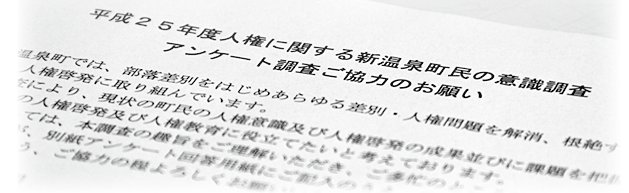 平成２５年度人権に関する新温泉町民の意識調査
アンケート調査ご協力のお願い
温泉町では、部落差別をはじめあらゆる差別・人権問題を解消、根絶す
人権啓発に取り組んでいます。
により、現状の町民の人権意識及び人権啓発の成果並びに課題を把
の人権啓発及び人権教育に役立てたいと考えております。
ては、本調査の趣旨をご理解いただき、ご多忙の
が、別紙アンケート回答用紙にご記入のう
う、ご協力の程よろしくお願